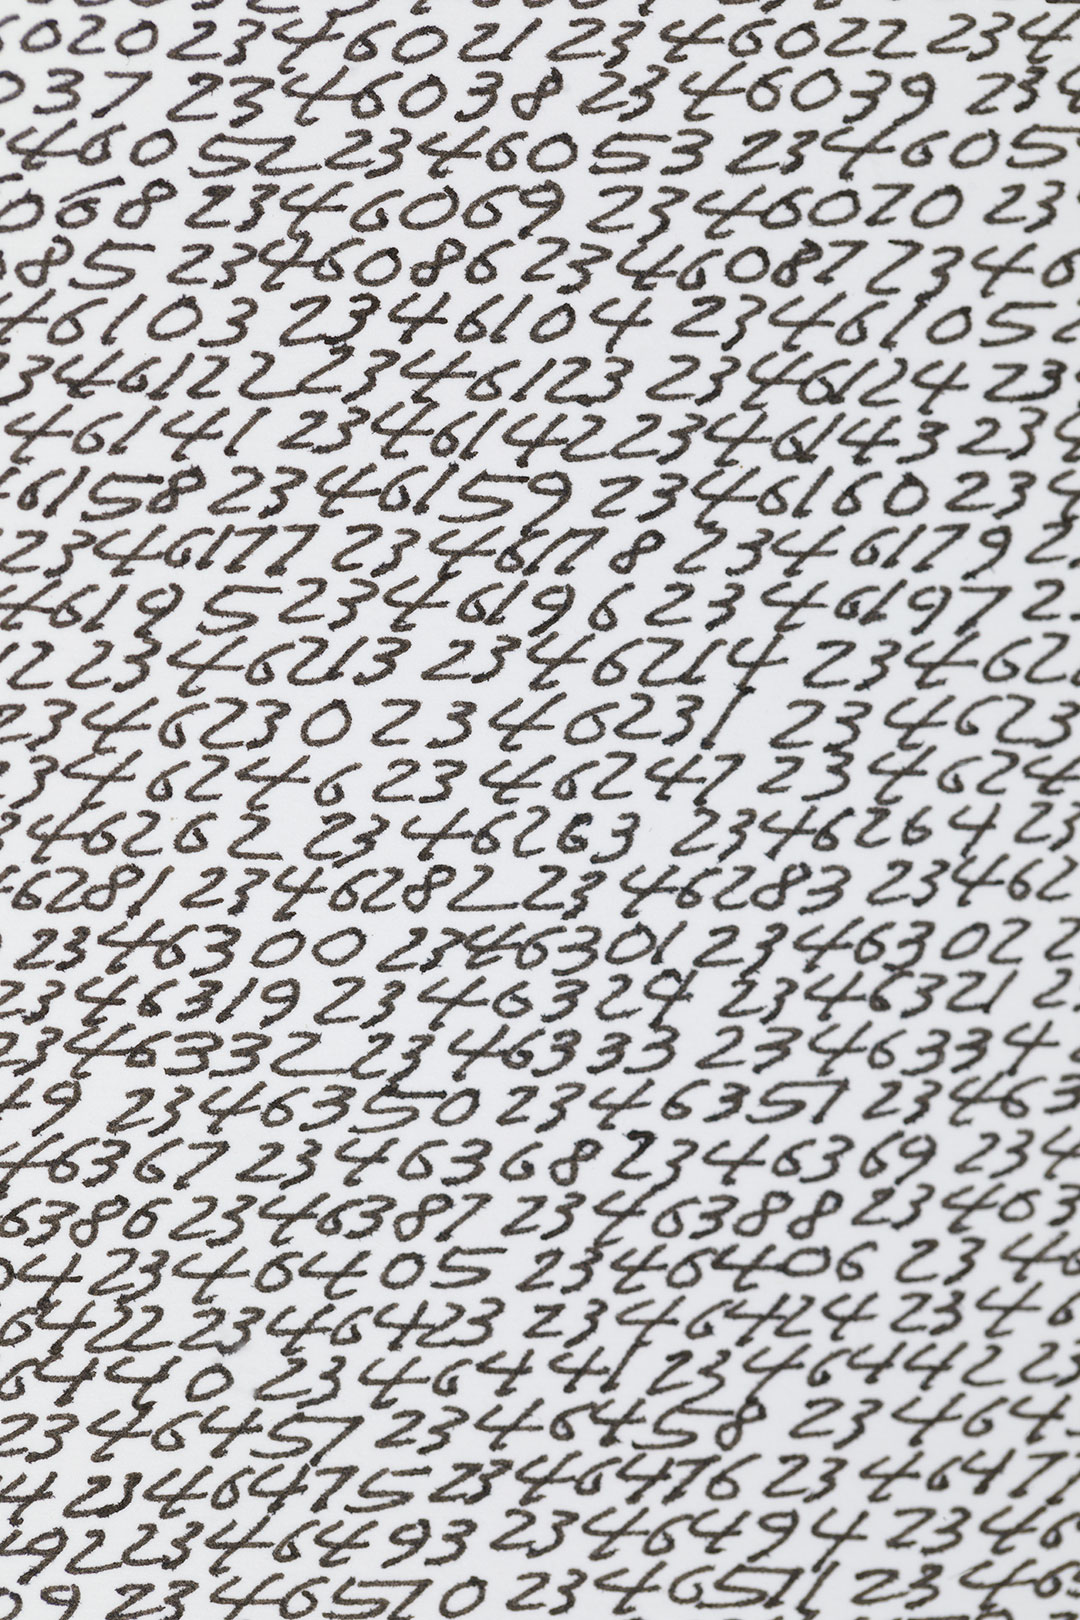 6020 2346021 2346022 234
037 2346038 2346039 234
46052 2346053 234605
6068 2346069 2346070 23
085 2346086 2346087 2346
46103 2346104 2346105 2
346122 2346123 2346124 23
46141 2346142 2346143 234
46158 2346159 2346160 234
2346177 2346178 2346179 2
46195 2346196 2346197 2
12 2346213 2346214 23462
2346230 2346231 234623
2346246 2346247 234624
346262 2346263 2346264 23
46281 2346282 2346283 23462
2346300 2346301 2346302 2
2346319 234632 2346321 2
2346332 2346333 2346334
49 2346350 2346351 23463
46367 2346368 2346369 234
6386 2346387 2346388 23463
04 2346405 2346406 2346
6422 2346423 2346424 2346
6440 2346441 2346442 23
2346457 2346458 23464
4 2346475 2346476 234647
492 2346493 2346494 2346
09 2346510 2346511 2346